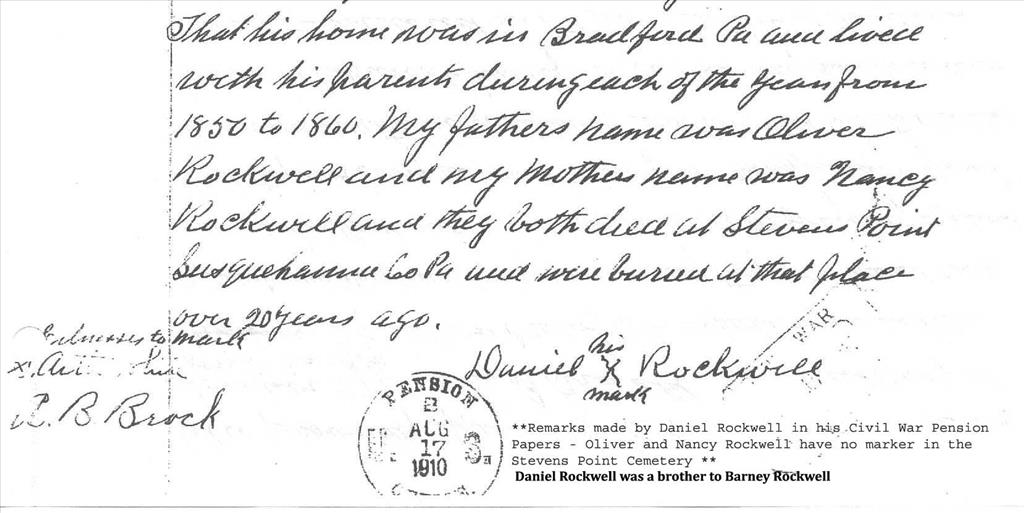 That his home was in Bradford Pa and lived
with his parents during each of the years from
1850 to 1860. My fathers name was Oliver
Rockwell and my Mothers name was Nancy
Rockwell and they both died at Stevens Point
Susquehanna Co Pa and were buried at that place
over 20 years ago.
Witnesses to mark
x. B Brock
Daniel his X mark Rockwell
WAR
PENSION
AUG
17
1910
**Remarks made by Daniel Rockwell in his Civil War Pension
Papers - Oliver and Nancy Rockwell have no marker in the
Stevens Point Cemetery **
Daniel Rockwell was a brother to Barney Rockwell